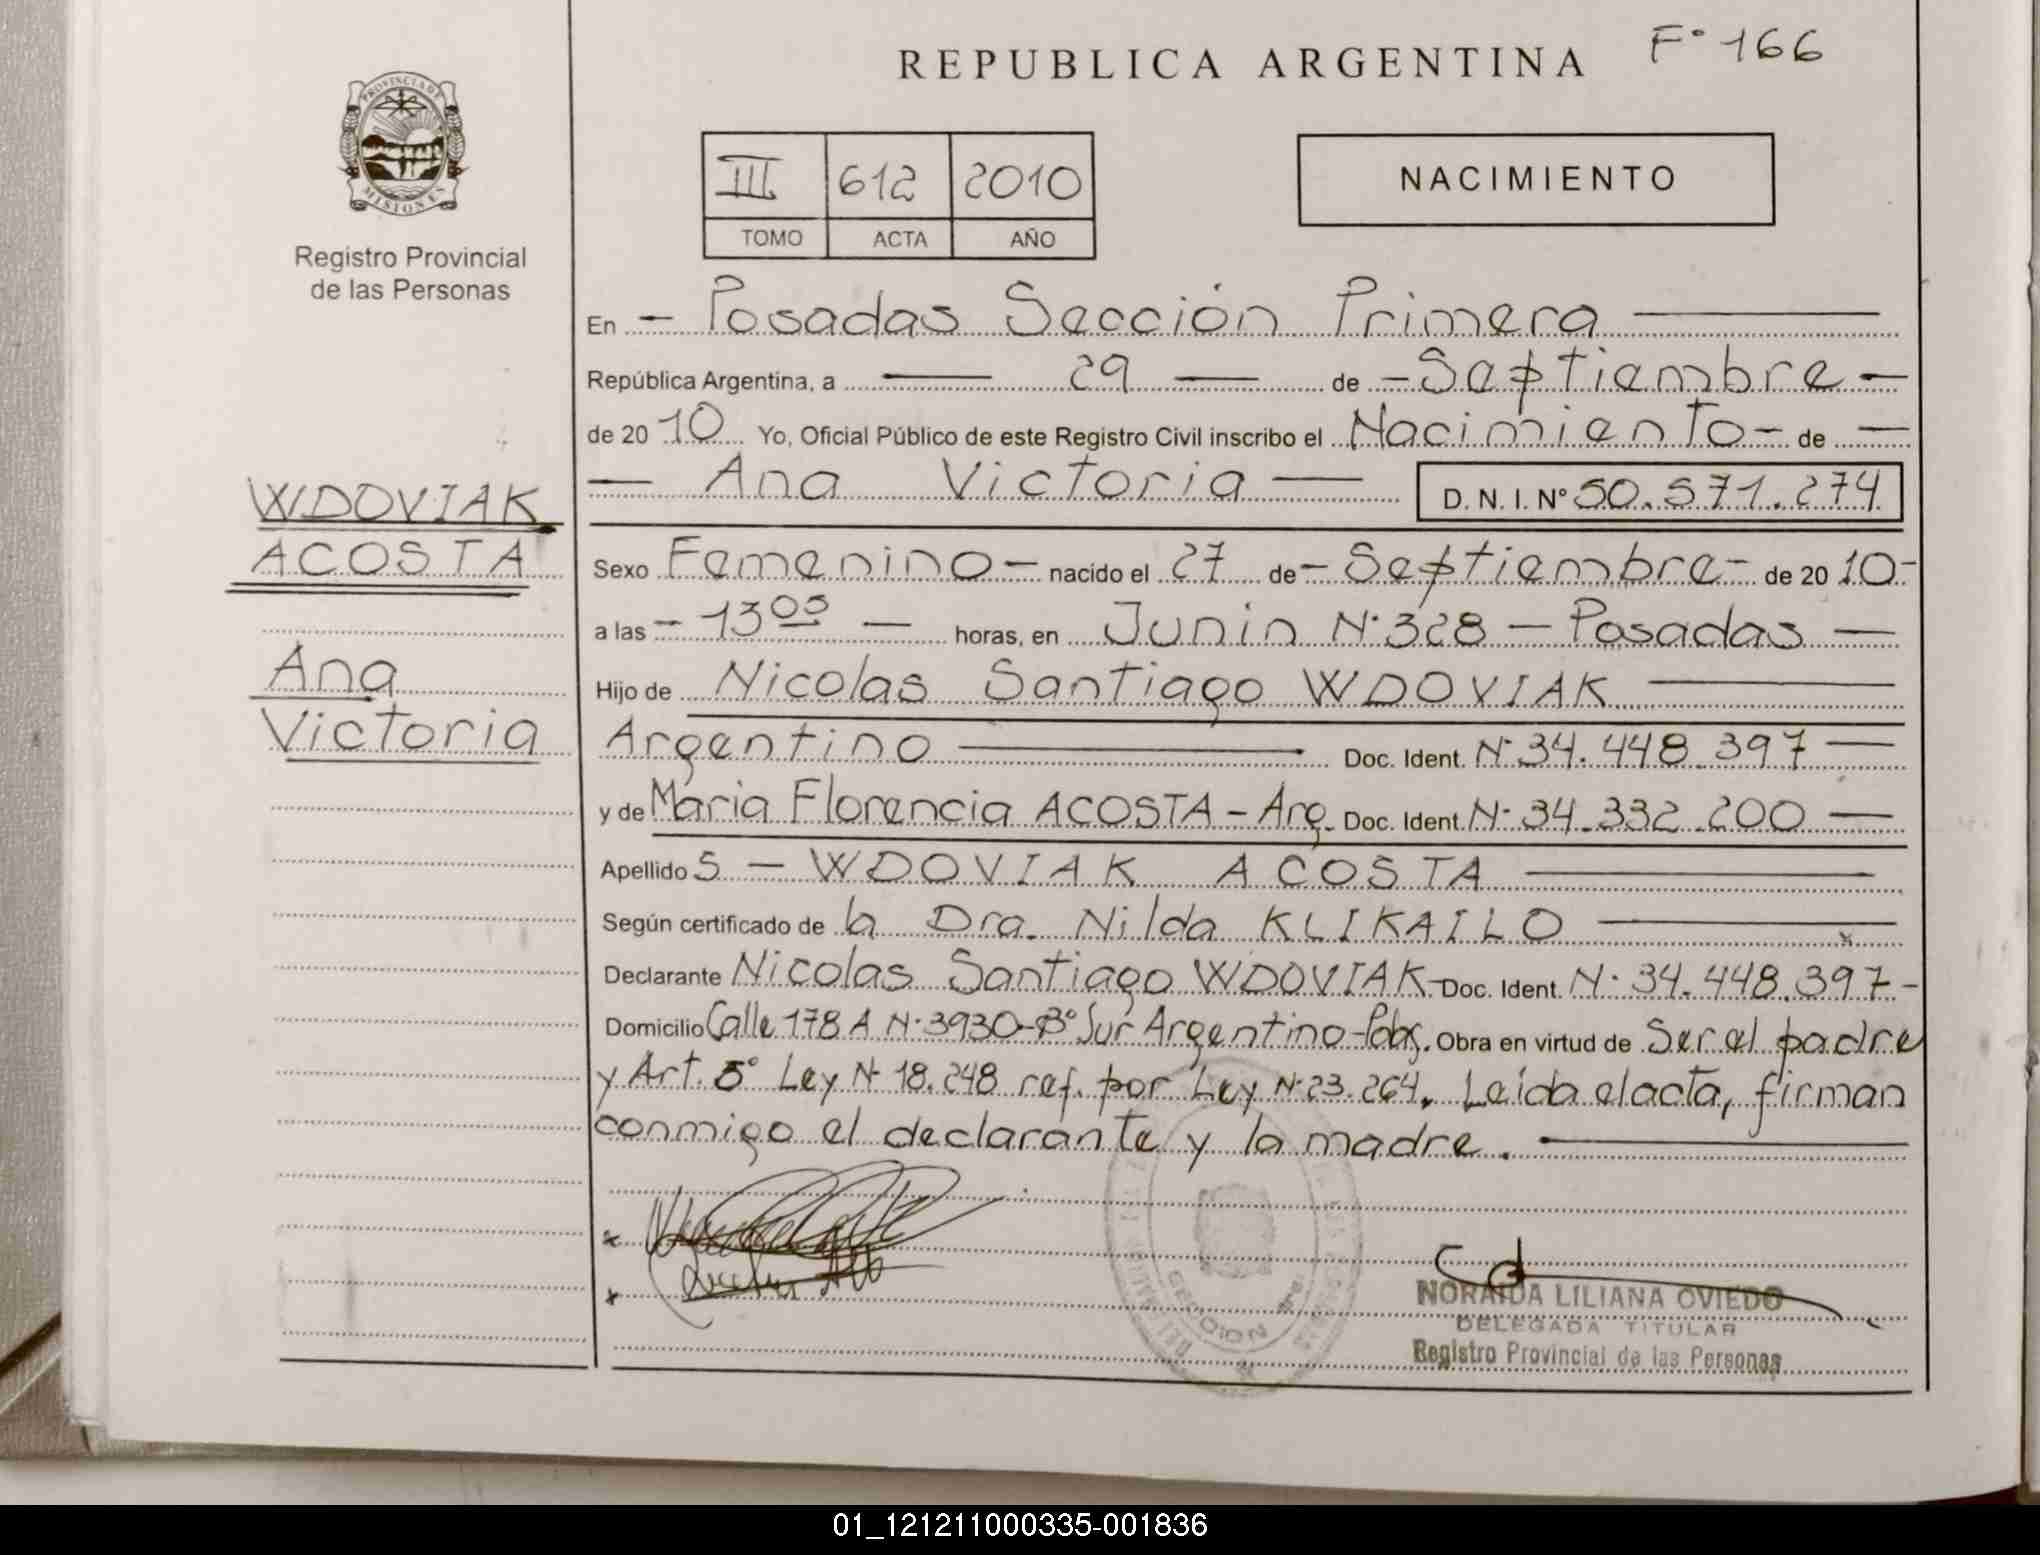 REPUBLICA ARGENTINA
Fº 166
PROVINCIA DE
MISIONES
Registro Provincial
de las Personas
III 612 2010
TOMO ACTA AÑO
NACIMIENTO
En - Posadas Sección Primera
República Argentina, a 29 de - Septiembre -
de 2010 Yo, Oficial Público de este Registro Civil inscribo el Nacimiento - de -
- Ana Victoria - D. N. I. Nº 50.571.274
WDOVIAK
ACOSTA
Ana
Victoria
Sexo Femenino - nacido el 27 de - Septiembre - de 2010 -
a las - 13 05 - horas, en Junin Nº 328 - Posadas -
Hijo de Nicolas Santiago WDOVIAK
Argentino Doc. Ident. Nº 34.448.397 -
y de Maria Florencia ACOSTA - Arg. Doc. Ident. Nº 34.332.200 -
Apellido S - WDOVIAK ACOSTA
Según certificado de la Dra. Nilda KLIKAILO
Declarante Nicolas Santiago WDOVIAK - Doc. Ident. Nº 34.448.397 -
Domicilio Calle 178 A Nº 3930 - Bº Sur Argentino - Pdas. Obra en virtud de Ser el padre
y Art. 5º Ley Nº 18.248 ref. por Ley Nº 23.264. Leída el acta, firman
conmigo el declarante y la madre.
SECCION 1ra
NORAIDA LILIANA OVIEDO
DELEGADA TITULAR
Registro Provincial de las Personas
01_121211000335-001836